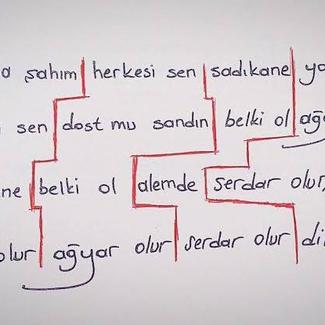 şahım herkesi sen sadıkane
sen dost mu sandın belki ol
belki ol alemde serdar olur,
olur ağyar olur serdar olur